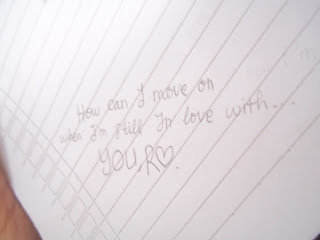 How can I move on
when I'm still In love with...
YOU,R♡.